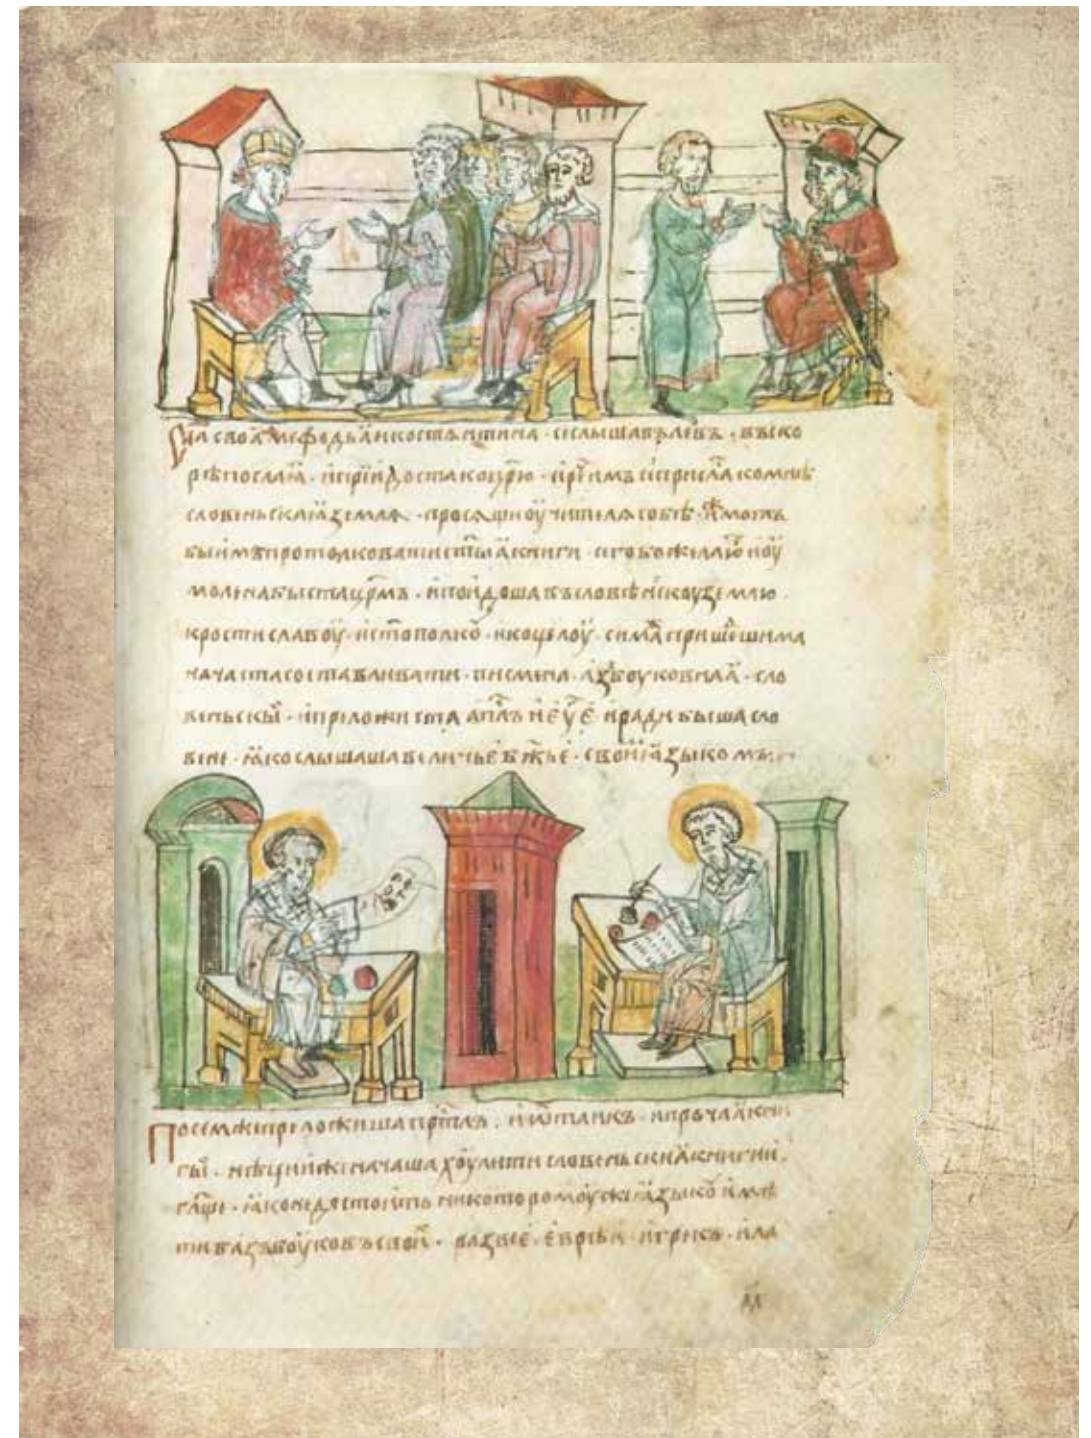 сн҃а своꙗ мефодьꙗ и костѧнтина · и слышавъ левъ · въско
рѣ посла ꙗ · и прїидоста ко цр҃ю · и реⷱ҇ имъ се присла ко мнѣ
словеньскаꙗ земля · просѧщи оучителѧ собѣ · иⷤ моглъ
бы имъ протолковати ст҃ыꙗ книги · сего бо желаю · и оу
молена быста цр҃мъ · и поидоша въ словѣнскоу землю ·
к ростиславоу · и ст҃ополкоⷹ · и коцелоу · симаⷤ пришеⷣшима
начаста составливати · писмена · азъбоуковнаꙗ · сло
веньскы · и преложиста апⷭ҇лъ и еуⷢ҇е · и ради быша сло
вене · ꙗко слышаша величье бж҃ье · своиⷨ ꙗзыкомъ ·
Посем же преложиша пⷭ҇лтрь · и ѡⷯтаикъ · и прочаꙗ кни
гы · нѣции же начаша хоулити словеньскиꙗ книги ·
гл҃ще · ꙗко не достоить никоторомоу же ꙗзыкоⷹ имѣ
ти азъбоуковъ своиⷯ · развѣе · еврѣи · и грикъ · и ла